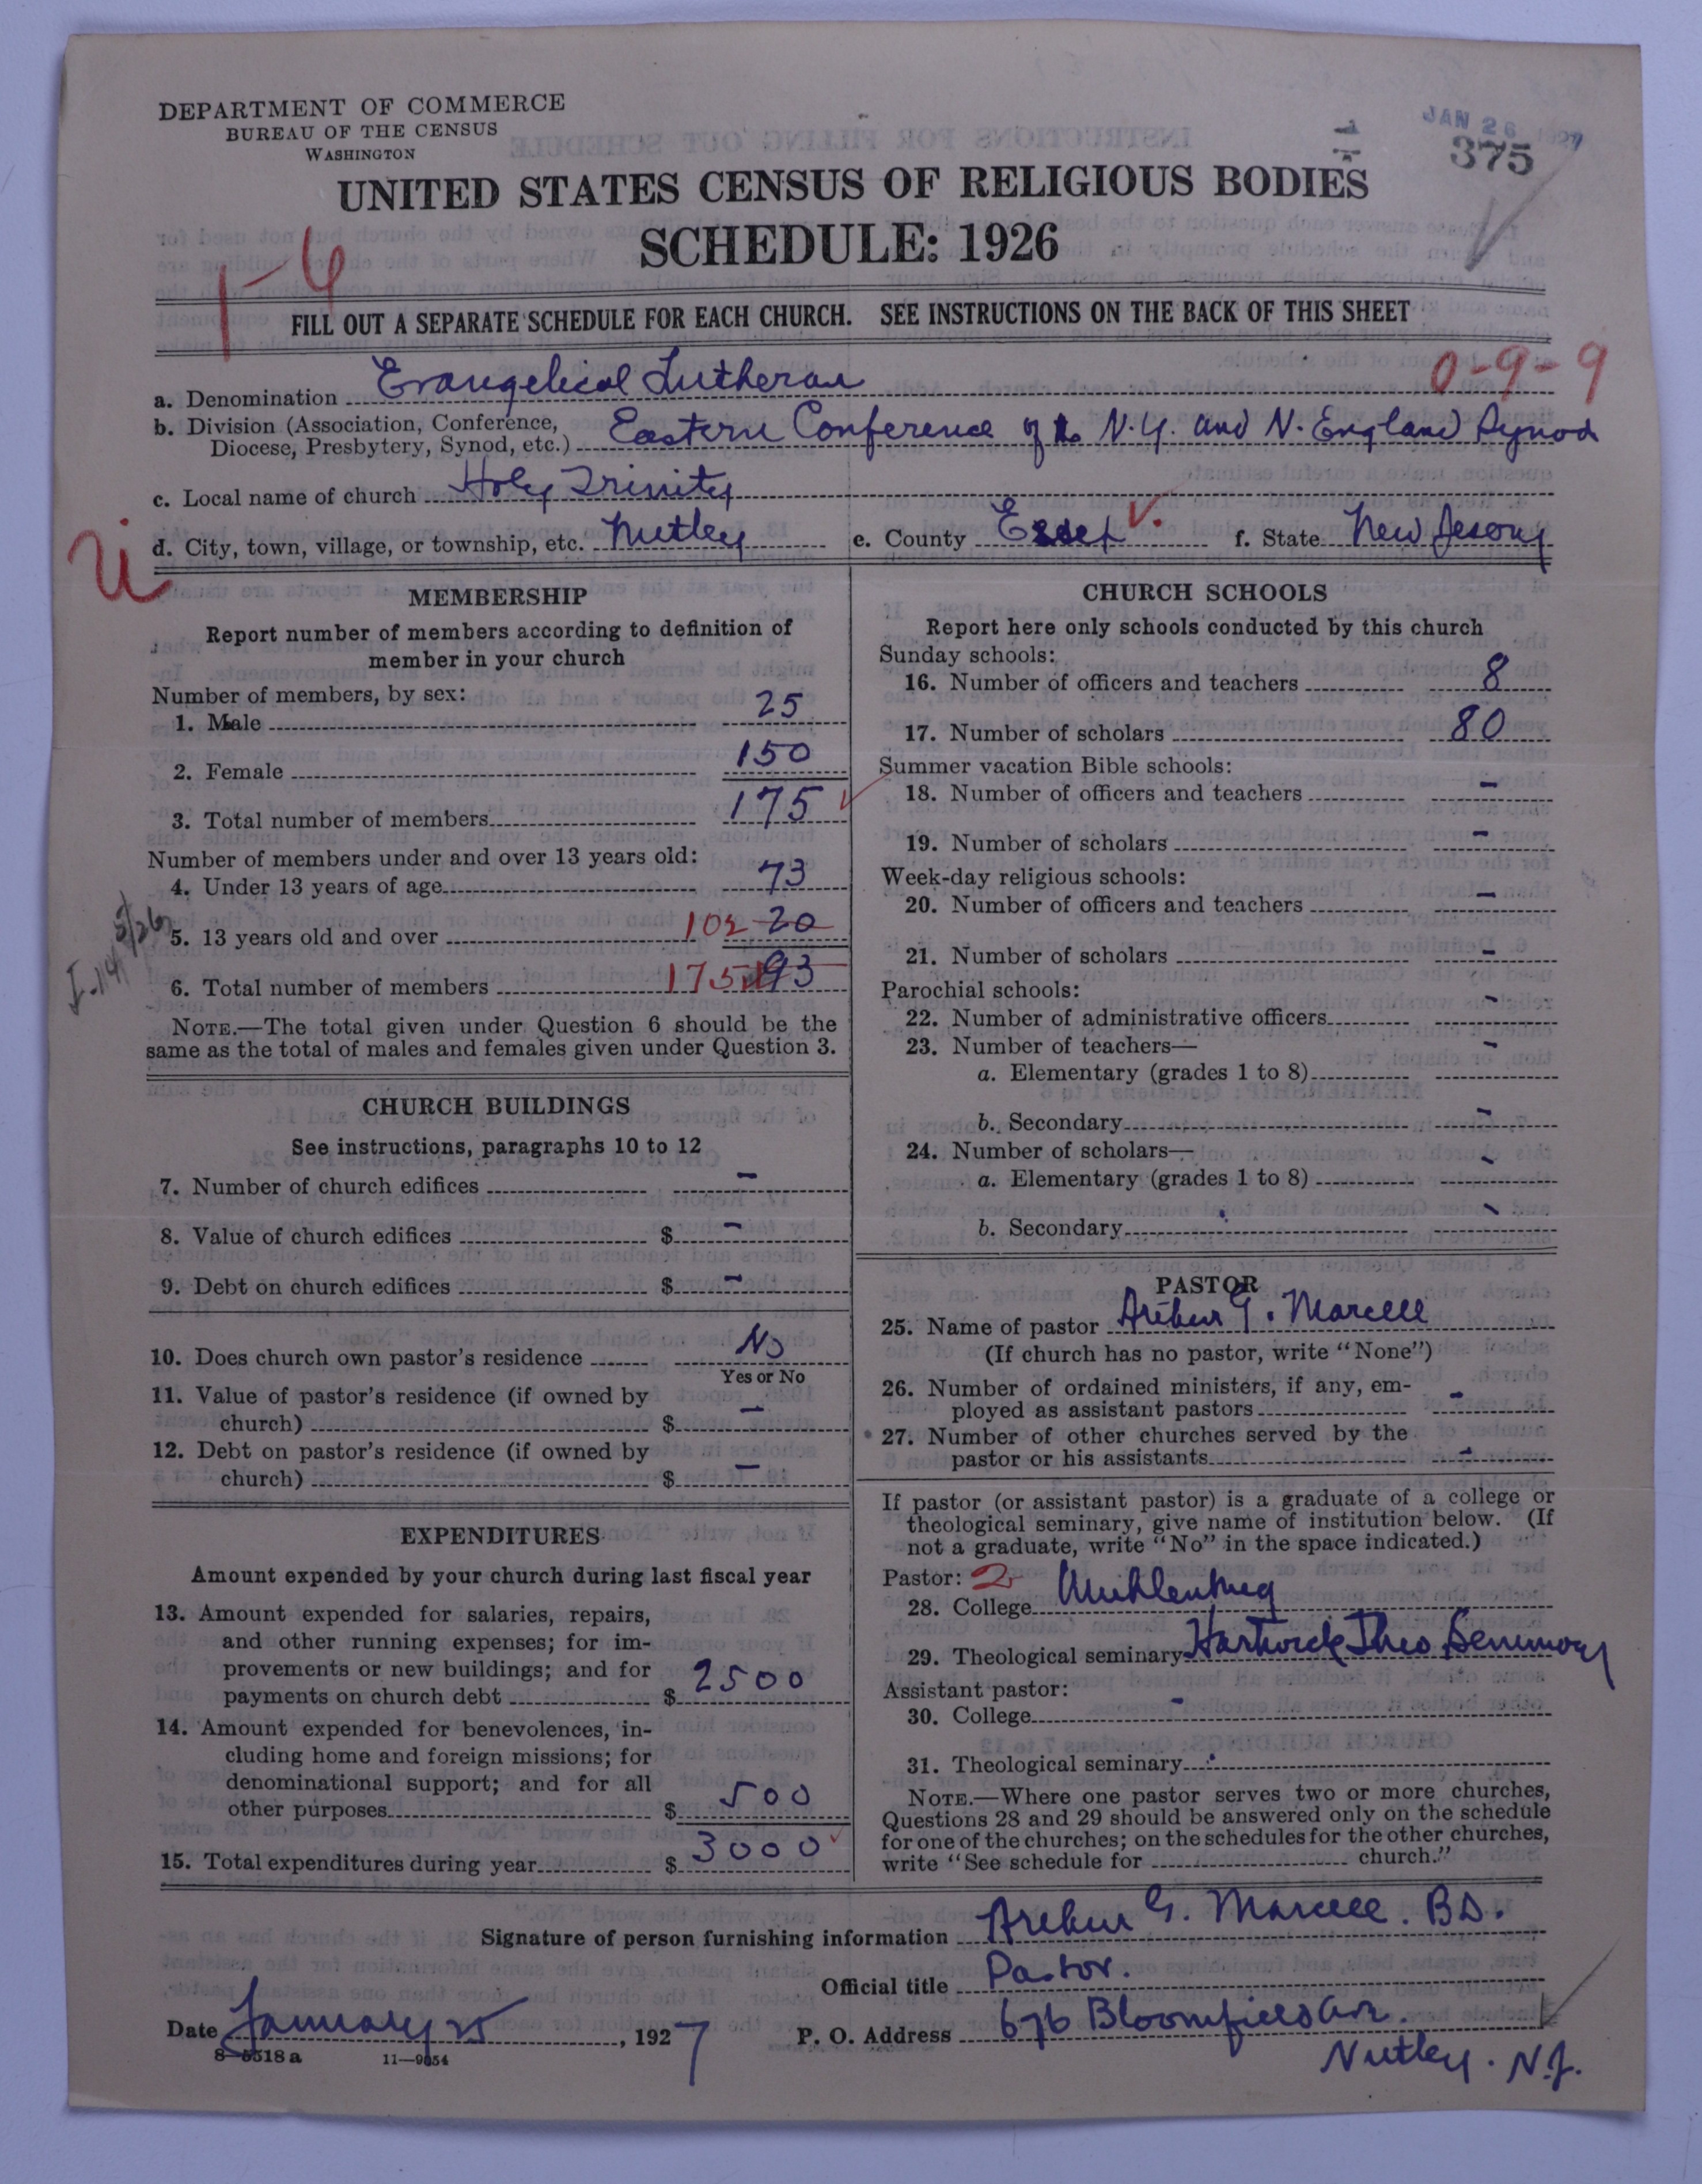 DEPARTMENT OF COMMERCE
BUREAU OF THE CENSUS
WASHINGTON
JAN 26 1927
375
UNITED STATES CENSUS OF RELIGIOUS BODIES
SCHEDULE: 1926
1-6
FILL OUT A SEPARATE SCHEDULE FOR EACH CHURCH. SEE INSTRUCTIONS ON THE BACK OF THIS SHEET
0-9-9
a. Denomination Evangelical Lutheran
b. Division (Association, Conference,
Diocese, Presbytery, Synod, etc.) Eastern Conference of the N.Y. and N. England Synod
c. Local name of church Holy Trinity
U
d. City, town, village, or township, etc. Nutley e. County Essex f. State New Jersey
MEMBERSHIP
Report number of members according to definition of
member in your church
Number of members, by sex:
1. Male 25
2. Female 150
3. Total number of members 175
Number of members under and over 13 years old:
4. Under 13 years of age 73
5. 13 years old and over 102 20
6. Total number of members 175 93
NOTE.—The total given under Question 6 should be the
same as the total of males and females given under Question 3.
CHURCH BUILDINGS
See instructions, paragraphs 10 to 12
7. Number of church edifices -
8. Value of church edifices $ -
9. Debt on church edifices $ -
10. Does church own pastor's residence No
Yes or No
11. Value of pastor's residence (if owned by
church) $ -
12. Debt on pastor's residence (if owned by
church) $ -
EXPENDITURES
Amount expended by your church during last fiscal year
13. Amount expended for salaries, repairs,
and other running expenses; for im-
provements or new buildings; and for
payments on church debt $ 2500
14. Amount expended for benevolences, in-
cluding home and foreign missions; for
denominational support; and for all
other purposes $ 500
15. Total expenditures during year $ 3000
CHURCH SCHOOLS
Report here only schools conducted by this church
Sunday schools:
16. Number of officers and teachers 8
17. Number of scholars 80
Summer vacation Bible schools:
18. Number of officers and teachers -
19. Number of scholars -
Week-day religious schools:
20. Number of officers and teachers -
21. Number of scholars -
Parochial schools:
22. Number of administrative officers -
23. Number of teachers—
a. Elementary (grades 1 to 8) -
b. Secondary -
24. Number of scholars—
a. Elementary (grades 1 to 8) -
b. Secondary -
PASTOR
25. Name of pastor Arthur G. Marcell
(If church has no pastor, write "None")
26. Number of ordained ministers, if any, em-
ployed as assistant pastors -
27. Number of other churches served by the
pastor or his assistants -
If pastor (or assistant pastor) is a graduate of a college or
theological seminary, give name of institution below. (If
not a graduate, write "No" in the space indicated.)
Pastor: 2
28. College Muhlenburg
29. Theological seminary Hartwick Theo. Seminary
Assistant pastor:
30. College -
31. Theological seminary
NOTE.—Where one pastor serves two or more churches,
Questions 28 and 29 should be answered only on the schedule
for one of the churches; on the schedules for the other churches,
write "See schedule for church."
Signature of person furnishing information Arthur G. Marcell. B.D.
Official title Pastor.
Date January 25, 1927 P. O. Address 676 Bloomfield Ave.
Nutley. N.J.
8-5518 a 11-9054